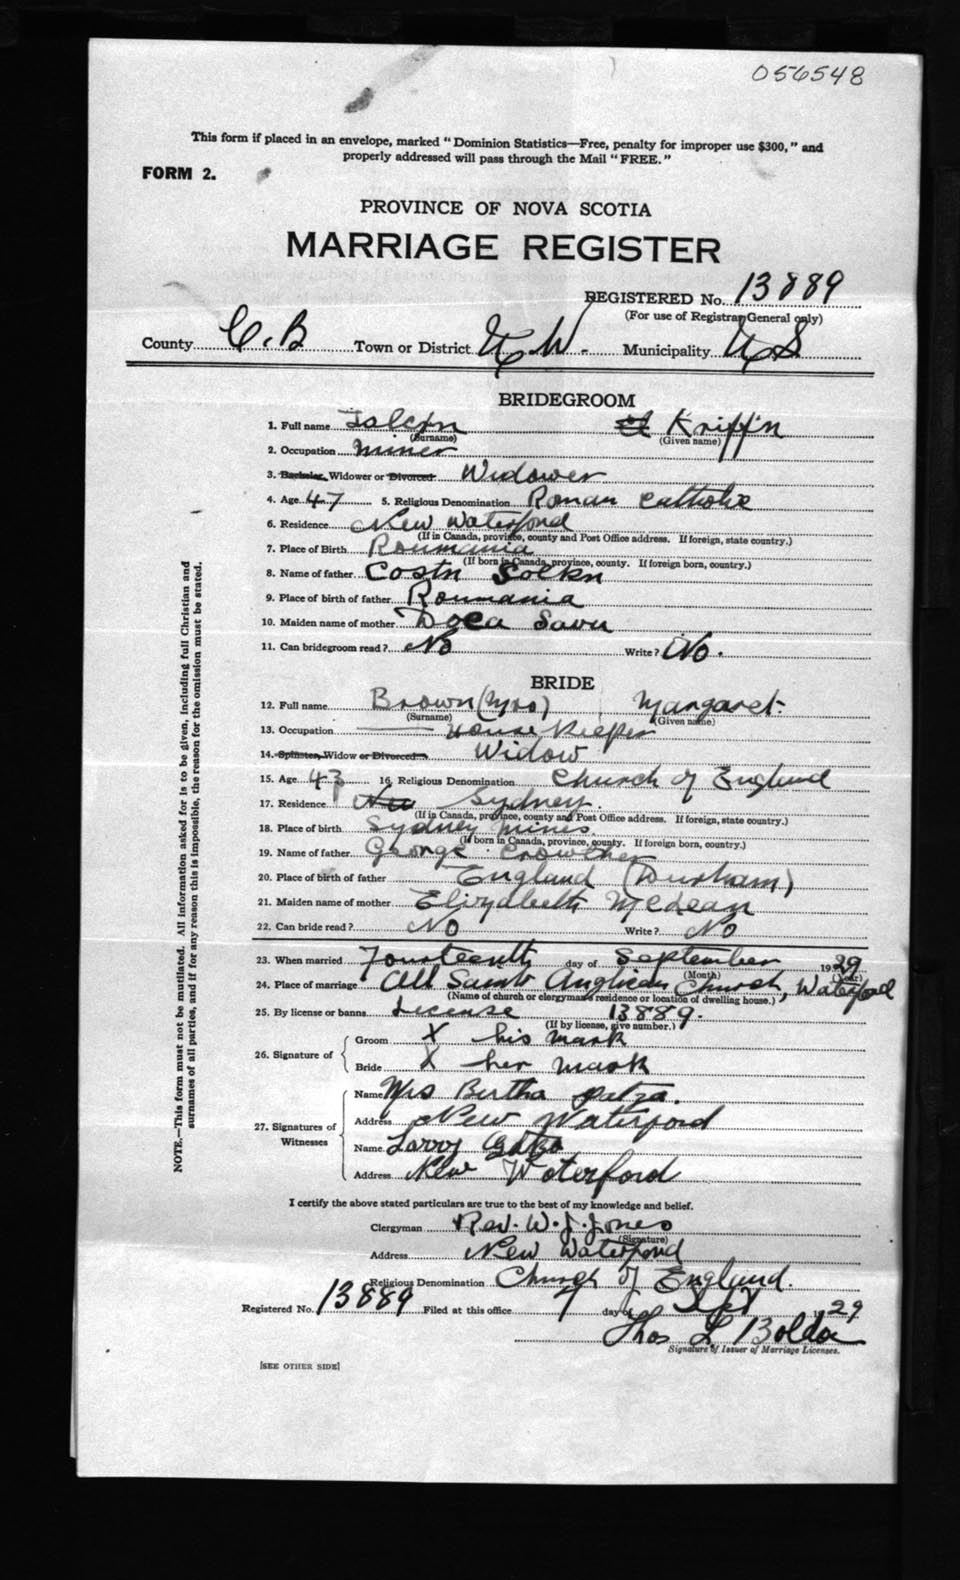 056548
This form if placed in an envelope, marked "Dominion Statistics—Free, penalty for improper use $300," and
properly addressed will pass through the Mail "FREE."
FORM 2.
PROVINCE OF NOVA SCOTIA
MARRIAGE REGISTER
REGISTERED No. 13889
(For use of Registrar General only)
County C.B Town or District N.W. Municipality
BRIDEGROOM
1. Full name Kriffin
(Surname) (Given name)
2. Occupation miner
3. Bachelor, Widower or Divorced Widower
4. Age 47 5. Religious Denomination Roman Catholic
6. Residence New Waterford
(If in Canada, province, county and Post Office address. If foreign, state country.)
7. Place of Birth Roumania
(If born in Canada, province, county. If foreign born, country.)
8. Name of father Costn Solkn
9. Place of birth of father Roumania
10. Maiden name of mother Doca Savu
11. Can bridegroom read? No Write? No.
BRIDE
12. Full name Brown (Mrs) Margaret
(Surname) (Given name)
13. Occupation House Keeper
14. Spinster, Widow or Divorced Widow
15. Age 43 16. Religious Denomination Church of England
17. Residence New Sydney.
(If in Canada, province, county and Post Office address. If foreign, state country.)
18. Place of birth Sydney Mines
(If born in Canada, province, county. If foreign born, country.)
19. Name of father George Crowther
20. Place of birth of father England (Durham)
21. Maiden name of mother Elizydbeth McLean
22. Can bride read? No Write? No
23. When married Fourteenth day of September 1929
(Month) (Year)
24. Place of marriage All Saints Anglican Church, Waterford
(Name of church or clergyman's residence or location of dwelling house.)
25. By license or banns License 13889.
(If by license, give number.)
26. Signature of Groom X his mark
Bride X her mark
27. Signatures of Witnesses Name Mrs Bertha Patza.
Address New Waterford
Name Larry
Address New Waterford
I certify the above stated particulars are true to the best of my knowledge and belief.
Clergyman Rev. W. J. Jones
(Signature)
Address New Waterford
Religious Denomination Church of England.
Registered No. 13889 Filed at this office 7 day of Sept 1929
Thos L
Signature of Issuer of Marriage Licenses.
[SEE OTHER SIDE]
NOTE.—This form must not be mutilated. All information asked for is to be given, including full Christian and
surnames of all parties, and if for any reason this is impossible, the reason for the omission must be stated.